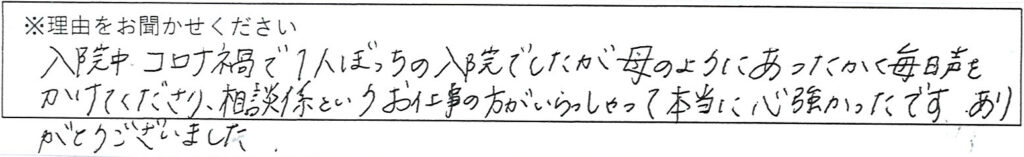 ※理由をお聞かせください
入院中 コロナ禍で1人ぼっちの入院でしたが母のようにあったかく毎日声を
かけてくださり、相談係というお仕事の方がいらっしゃって本当に心強かったです あり
がとうございました.